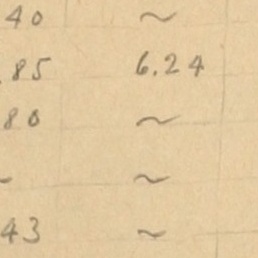 40 ~
.85 6.24
80 ~
~ ~
43 ~